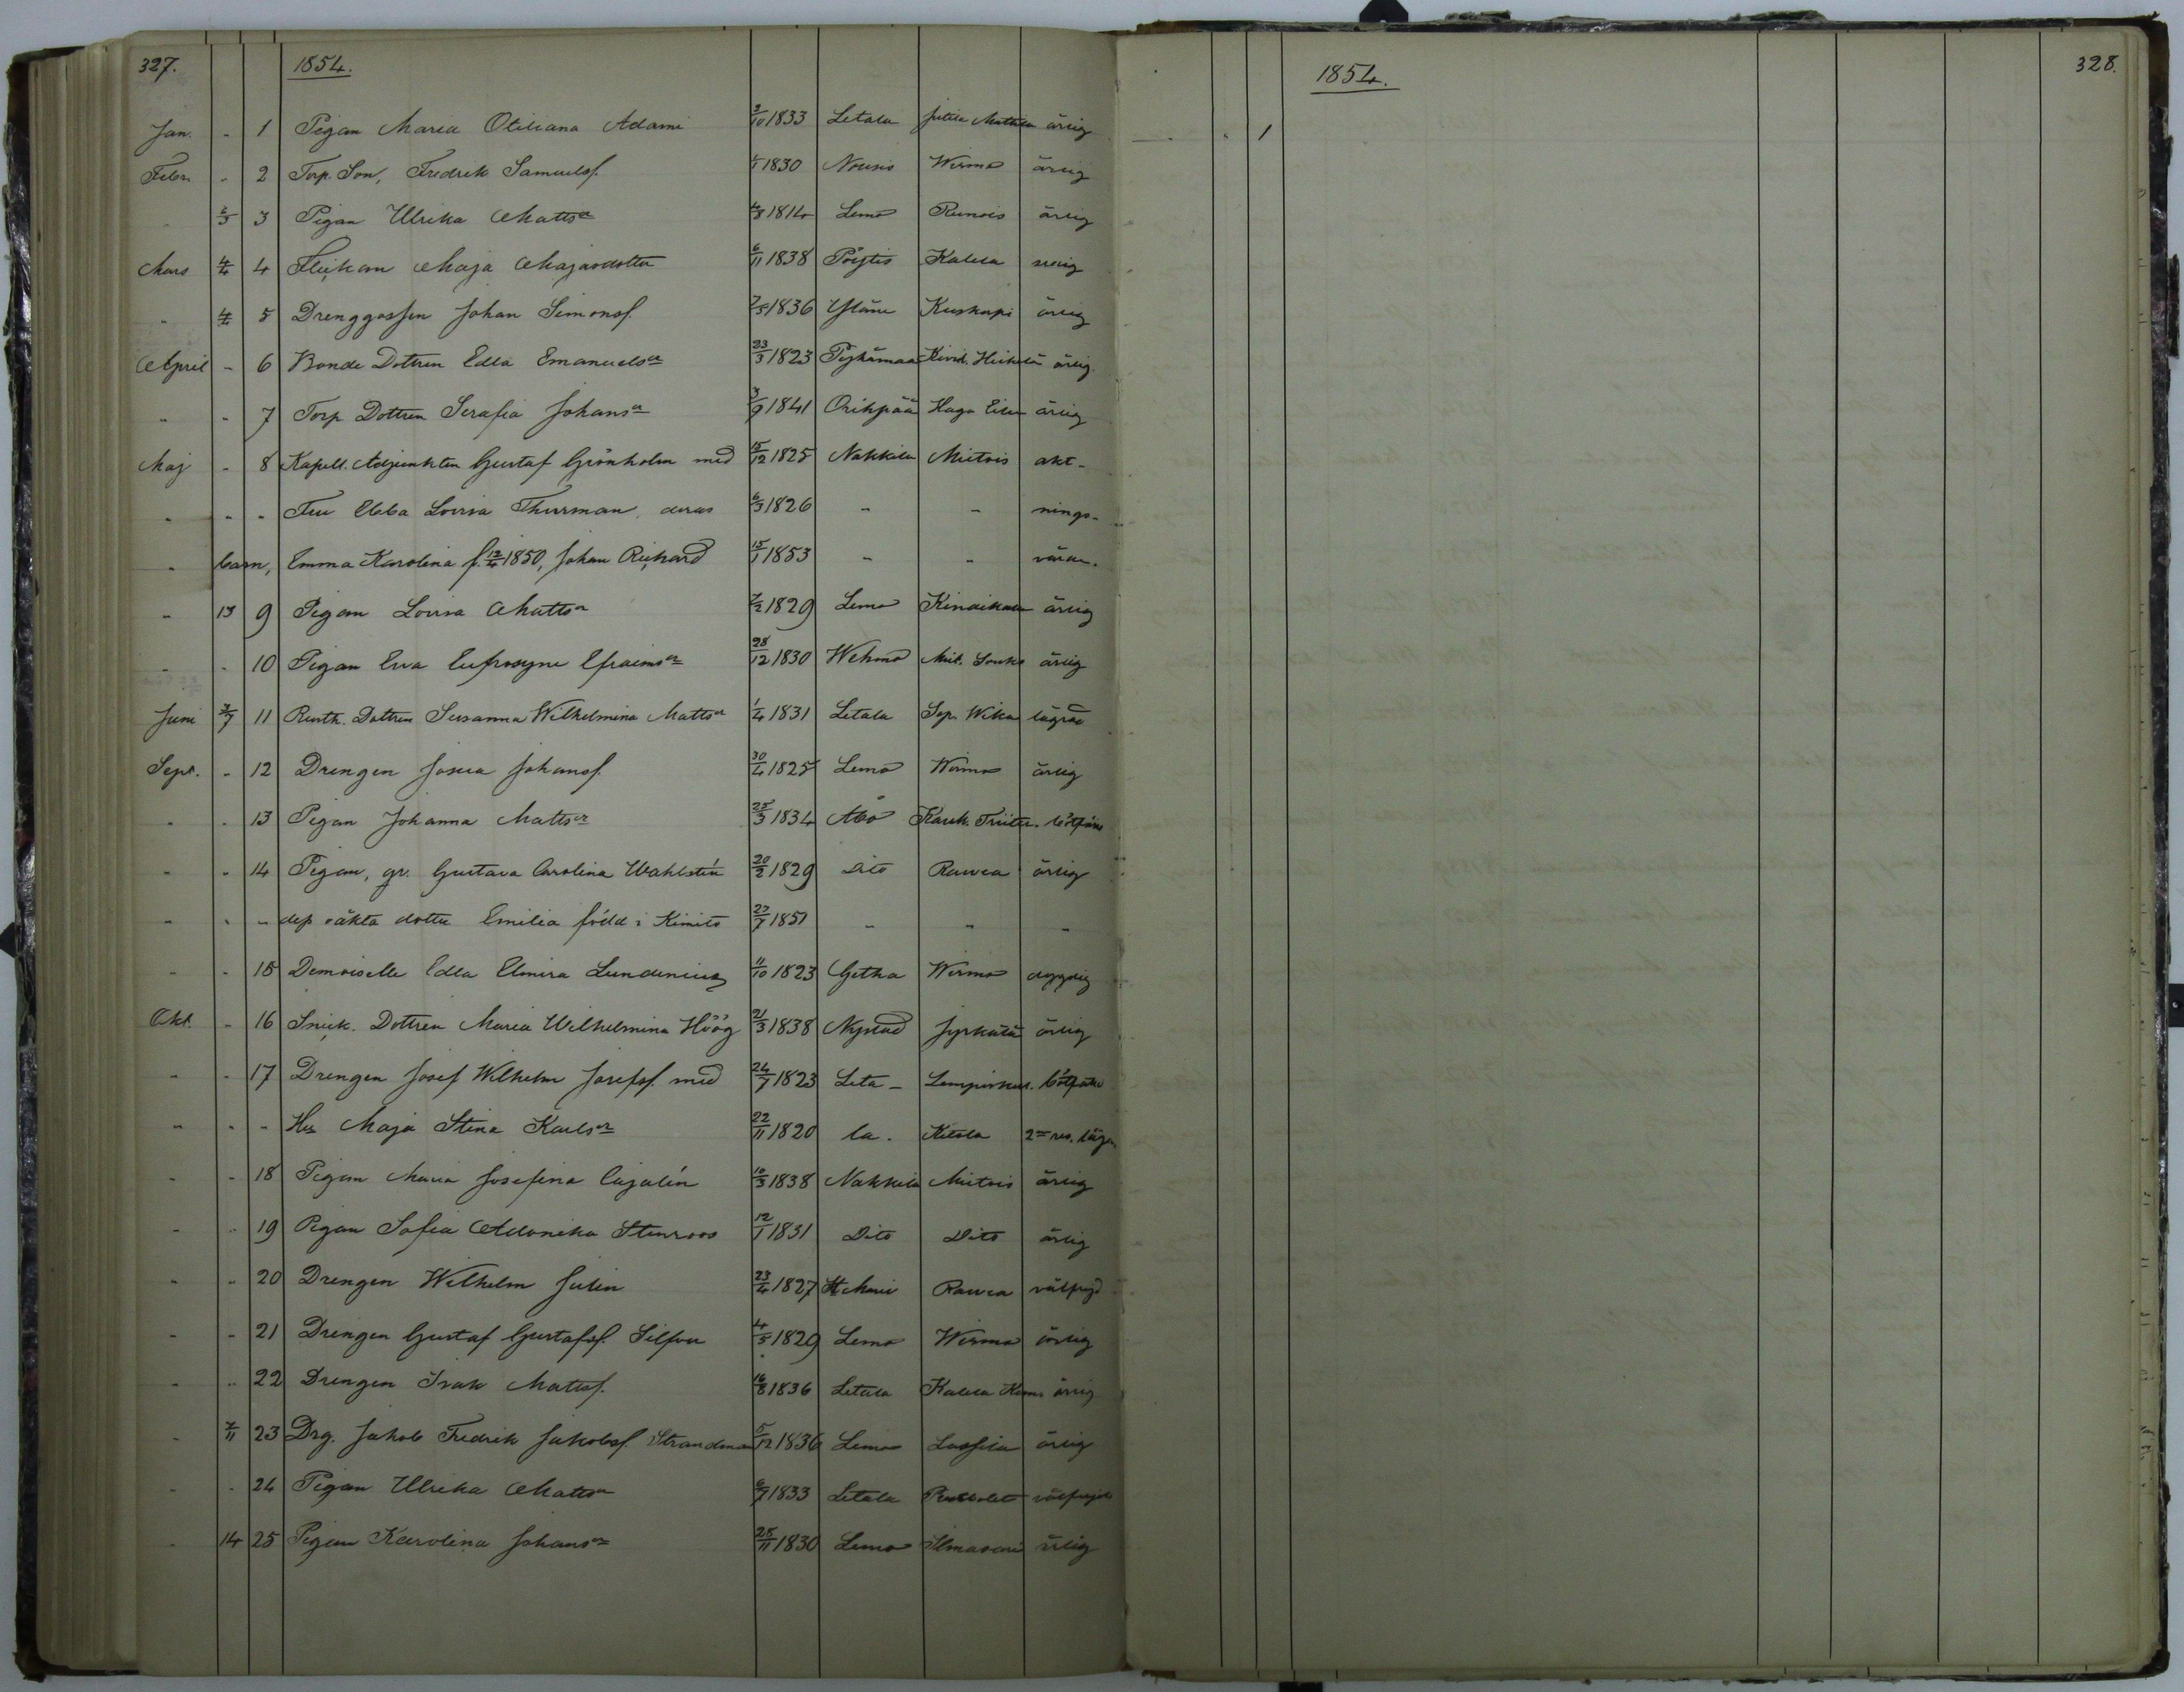 327. 1854.
Jan. - 1 Pigan Maria Otiliana Adami 3/10 1833 Letala Mattila ärlig
Febr. - 2 Torp. Son, Fredrik Samuelsf. 1830 Nousis Wirmo ärlig
" 6/3 3 Pigan Ulrika Mattsdr 1814 Lemo Runois ärlig
Mars 4/4 4 Flickan Maja Majasdotter 6/11 1838 Pöytis Kalela ärlig
" 4/4 5 Drenggossen Johan Simonsf. 7/5 1836 Yläne Kuskapi ärlig
April - 6 Bonde Dottren Edla Emanuelsdr 23/3 1823 Pyhämaa Heikelä ärlig.
" - 7 Torp Dottren Serafia Johansdr 3/9 1841 Orihpää Haga ärlig
Maj - 8 Kapell. Adjunkten Gustaf Grönholm med 15/12 1825 Nakkila Mietois akt-
" - - Fru Ebba Lovisa Thurman, deras 6/3 1826 - - nings-
" barn, Emma Karolina f. 12/4 1850, Johan Rickard 15/1 1853 - - värde.
" 13 9 Pigan Lovisa Mattsdr 7/2 1829 Lemo Kinaikala ärlig
" - 10 Pigan Eva Eufrosyne Efraimsdr 28/12 1830 Wehmo Miet. Sauko ärlig
Juni 3/7 11 Rusth. Dottren Susanna Wilhelmina Mattsdr 1/4 1831 Letala Sep. Wika lägrad
Sept. - 12 Drengen Josua Johansf. 30/4 1825 Lemo Wirmo ärlig
" - 13 Pigan Johanna Mattsdr 25/3 1834 Åbo Kark.
" - 14 Pigan, gr. Gustava Carolina Wahlstén 20/2 1829 Dito Rauvea ärlig
" - - dess oäkta dotter Emilia född i Kimito 27/7 1851 - - -
" - 15 Demoiselle Edla Elmira Lundenius 11/10 1823 Getha Wirmo dygdig
Okt. - 16 Snick. Dottren Maria Wilhelmina Höög 21/3 1838 Nystad Jyrkälä ärlig
" - 17 Drengen Josef Wilhelm Josefsf. med 24/7 1823 Leta-
" - - Hu Maja Stina Karlsdr 22/11 1820 la. Kitola 2ne res. läg.
" - 18 Pigan Maria Josefina Cajalén 10/3 1838 Nakkila Mietois ärlig
" - 19 Pigan Sofia Adonika Stenroos 12/1 1831 Dito Dito ärlig
" - 20 Drengen Wilhelm Julin 23/4 1827 St Marie Rauvea välfrejd
" - 21 Drengen Gustaf Gustafsf. Silfver 4/5 1829 Lemo Wirmo ärlig
" - 22 Drengen Isak Mattsf. 16/8 1836 Letala Kalela ärlig
" 7/11 23 Drg. Jakob Fredrik Jakobsf. Strandman 5/12 1836 Lemo Lassila ärlig
" - 24 Pigan Ulrika Mattsdr 6/7 1833 Letala välfrejd
" 14 25 Pigan Karolina Johansdr 28/11 1830 Lemo Ilmasari ärlig
1854. 328.
- " 1